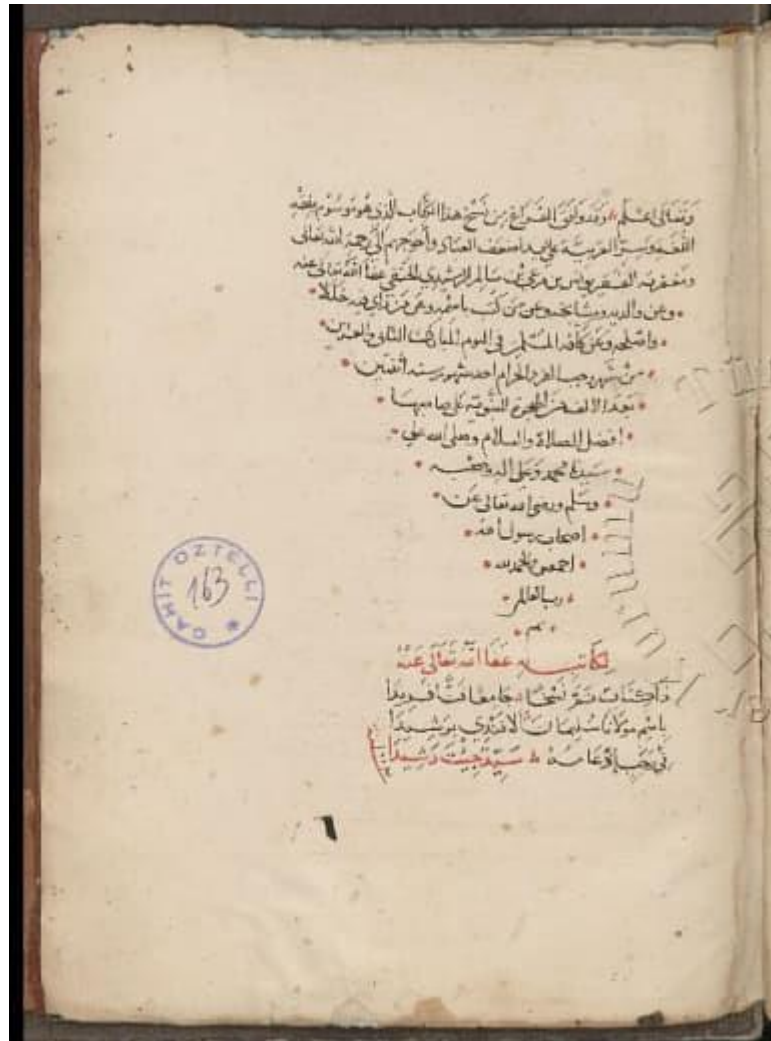 وتعالى اعلم وقد وافق الفراغ من نسخ هذا الكتاب الذي هو موسوم بفقه
اللغة وسر العربية على يد اضعف العباد وأحوجهم الى رحمة الله تعالى
ومغفرته الفقير يونس بن مرعي بن سالم الرشيدي الحنفي عفا الله تعالى عنه
وعن والديه ومشايخه وعن من كتب باسمه وعن من رأى فيه خللا
واصلحه وعن كافة المسلمين في اليوم المبارك الثاني والعشرين
من شهر رجب الفرد الحرام احد شهور سنة أثنتين
بعد الالف من الهجرة النبوية على صاحبها
افضل الصلاة والسلام وصلى الله على
سيدنا محمد وعلى آله وصحبه
وسلم ورضي الله تعالى عن
اصحاب رسول الله
اجمعين والحمد لله
رب العالمين
تم
لكاتبه عفا الله تعالى عنه
ذا كتاب تم نسخا جامعا فنا فريدا
باسم مولانا سليمان الافندي بو رشيدا
في رجب عامه سيد جيت رشيدا
سنة
CAHİT ÖZTELLİ
163